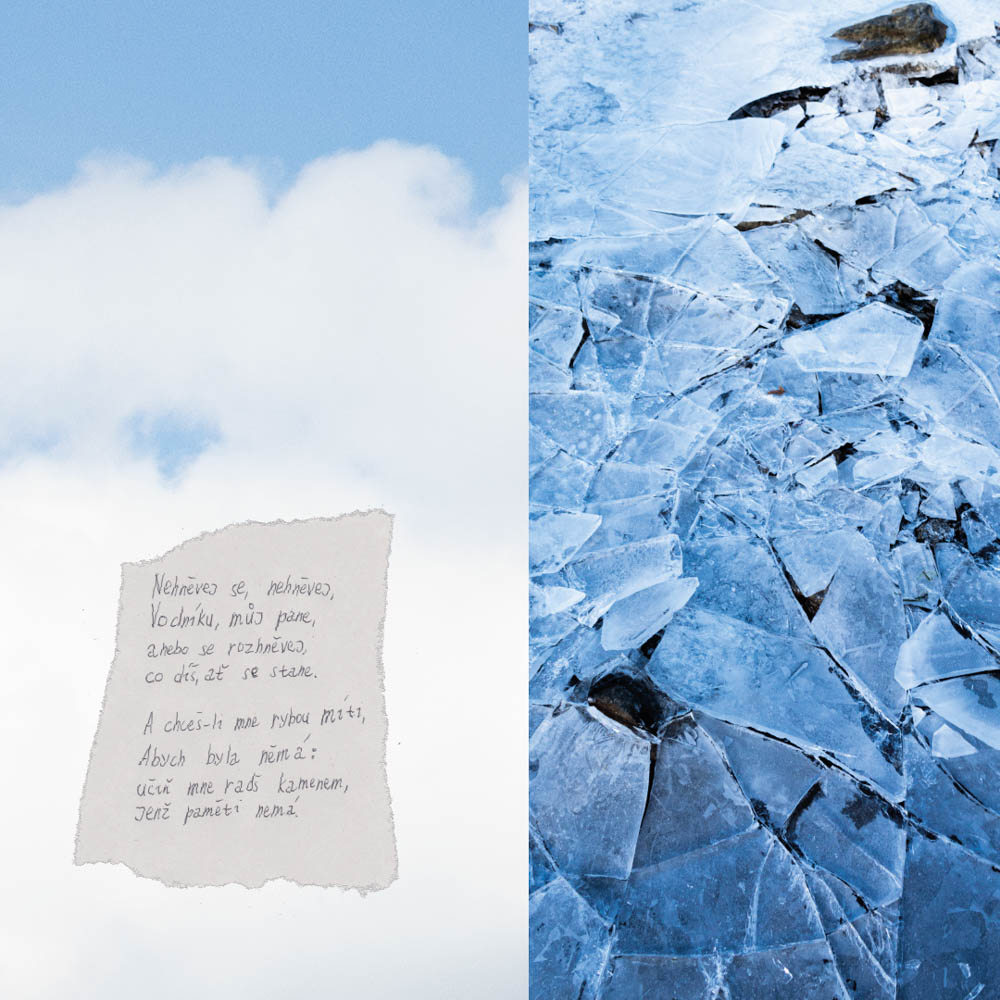 Nehněvej se, nehněvej,
Vodníku, můj pane,
anebo se rozhněvej,
co díš, ať se stane.
A chceš-li mne rybou míti,
Abych byla němá:
učiň mne radš kamenem,
jenž paměti nemá.